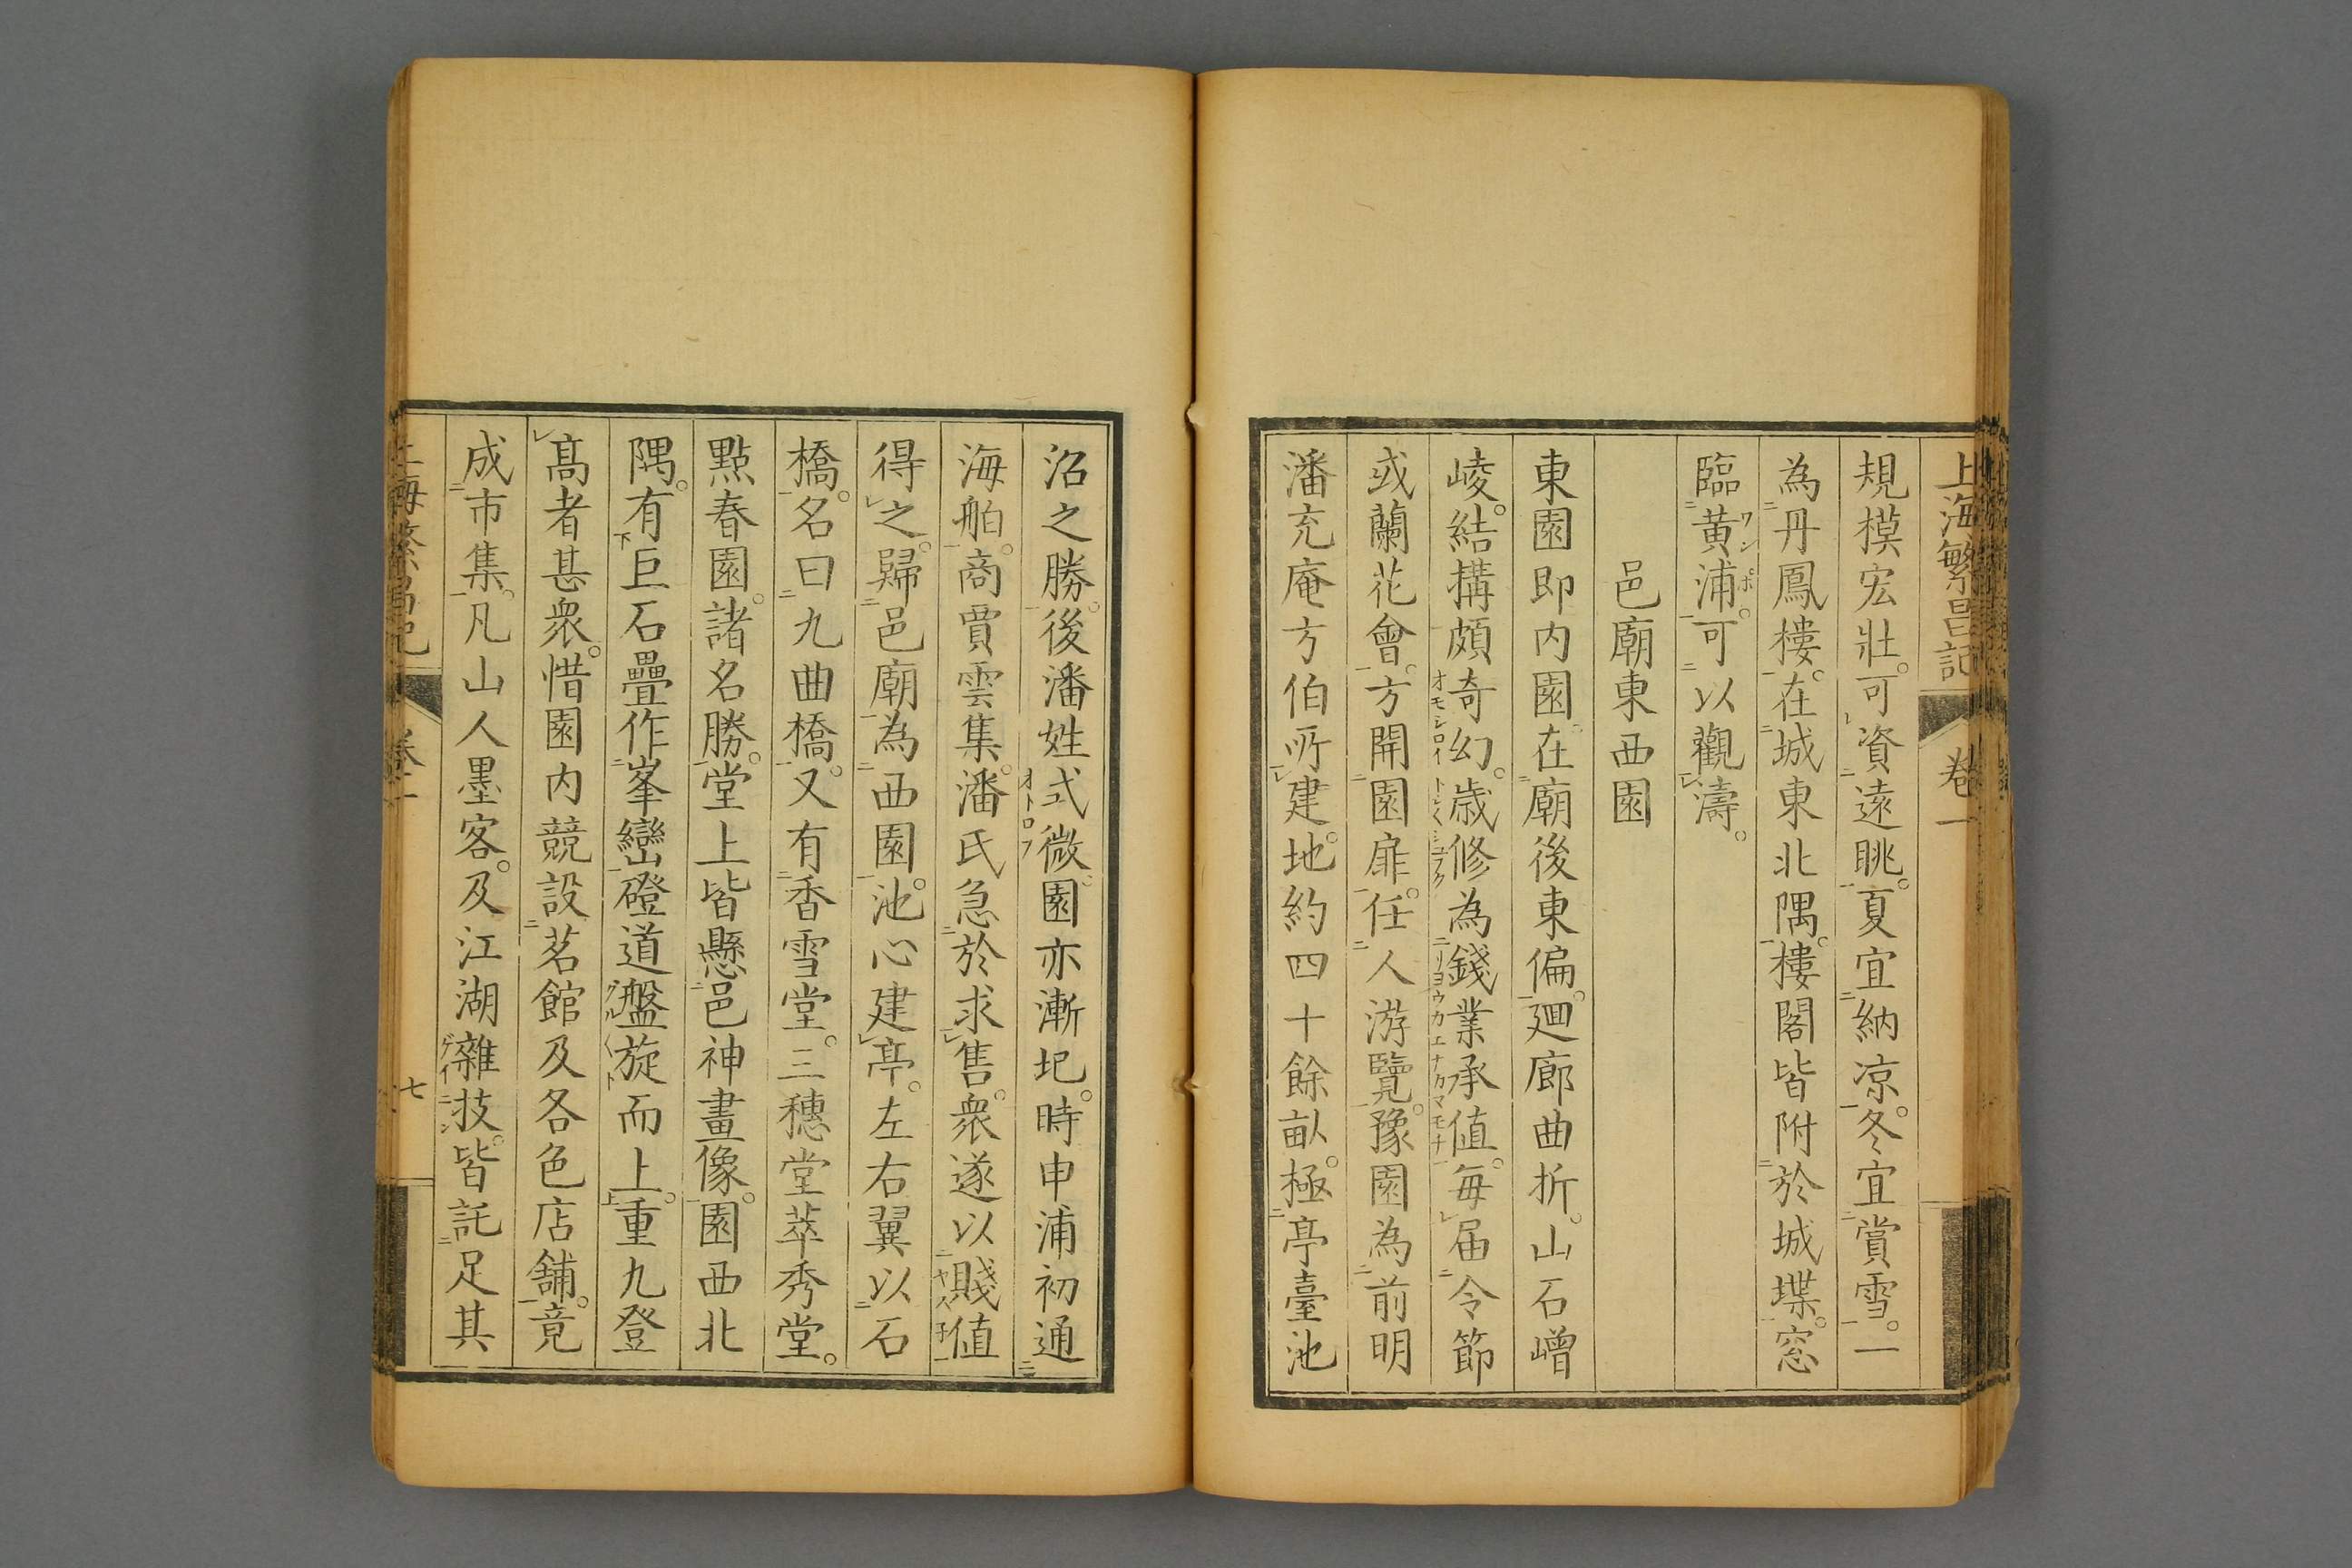 上海繁昌記 卷一
規模宏壯。可資遠眺。夏宜納凉。冬宜賞雪。一
為丹鳳樓。在城東北隅。樓閣皆附於城堞。窓
臨黄浦。可以觀濤。
邑廟東西園
東園即内園。在廟後東偏。廻廊曲折。山石嶒
崚。結搆頗奇幻。歳修為錢業承値。毎届令節
或蘭花會。方開園扉。任人游覽。豫園為前明
潘充庵方伯所建。地約四十餘畝。極亭臺池
沼之勝。後潘姓式微。園亦漸圯。時申浦初通
海舶。商賈雲集。潘氏急於求售。衆遂以賤値
得之。歸邑廟為西園。池心建亭。左右翼以石
橋。名曰九曲橋。又有香雪堂。三穗堂萃秀堂。
點春園。諸名勝。堂上皆懸邑神畫像。園西北
隅。有巨石疊作峯巒。磴道盤旋而上。重九登
髙者甚衆。惜園内競設茗館及各色店舖。竟
成市集。凡山人墨客。及江湖雜技。皆託足其
上海繁昌記 卷一 七